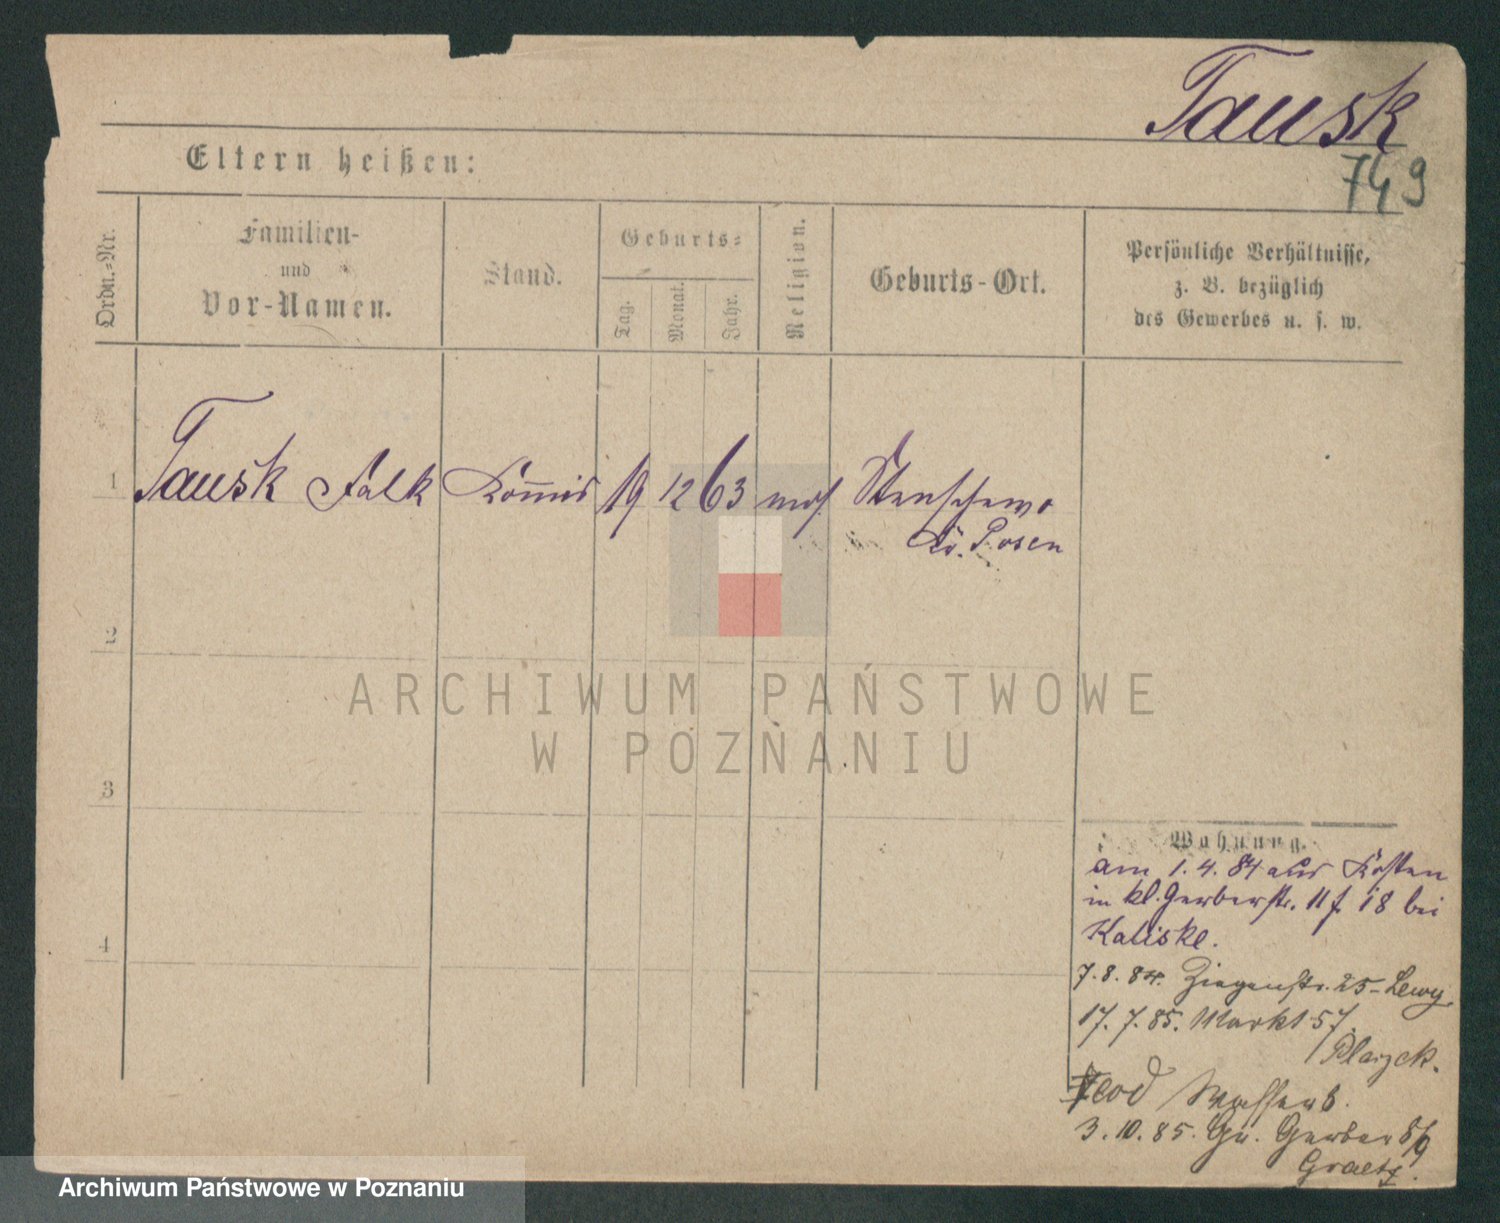 Tausk
749
Eltern heißen:
Ordn.-Nr.
Familien-
und
Vor-Namen.
Stand.
Geburts-
Tag.
Monat.
Jahr.
Religion.
Geburts-Ort.
Persönliche Verhältnisse,
z. B. bezüglich
des Gewerbes u. s. w.
1 Tausk Falk Kom̅is 19 12 63 mos. Stenschewo
Kr. Posen
2
3
4
Wohnung.
am 1. 4. 84 aus Kosten
in kl. Gerberstr. 11 f. 18 bei
Kaliske.
7. 8. 84. Ziegenstr. 25 - Lewy
17. 7. 85. Markt 57.
3. 10. 85. Gr. Gerber 8/9
Graetz.
ARCHIWUM PAŃSTWOWE
W POZNANIU
Archiwum Państwowe w Poznaniu